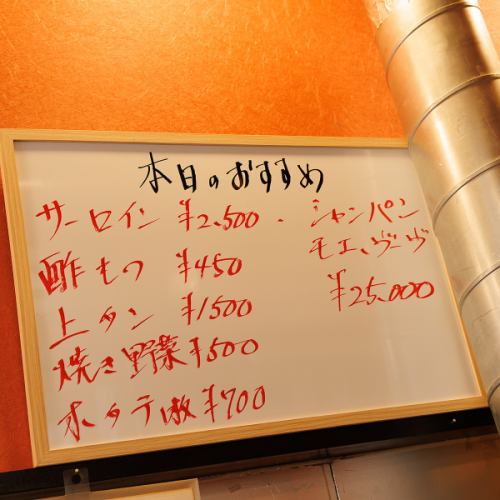 本日のおすすめ
サーロイン ¥2,500.
酢もつ ¥450
上タン ¥1500
焼き野菜 ¥500
ホタテ ¥700
シャンパン
モエ、ヴーヴ
¥25,000